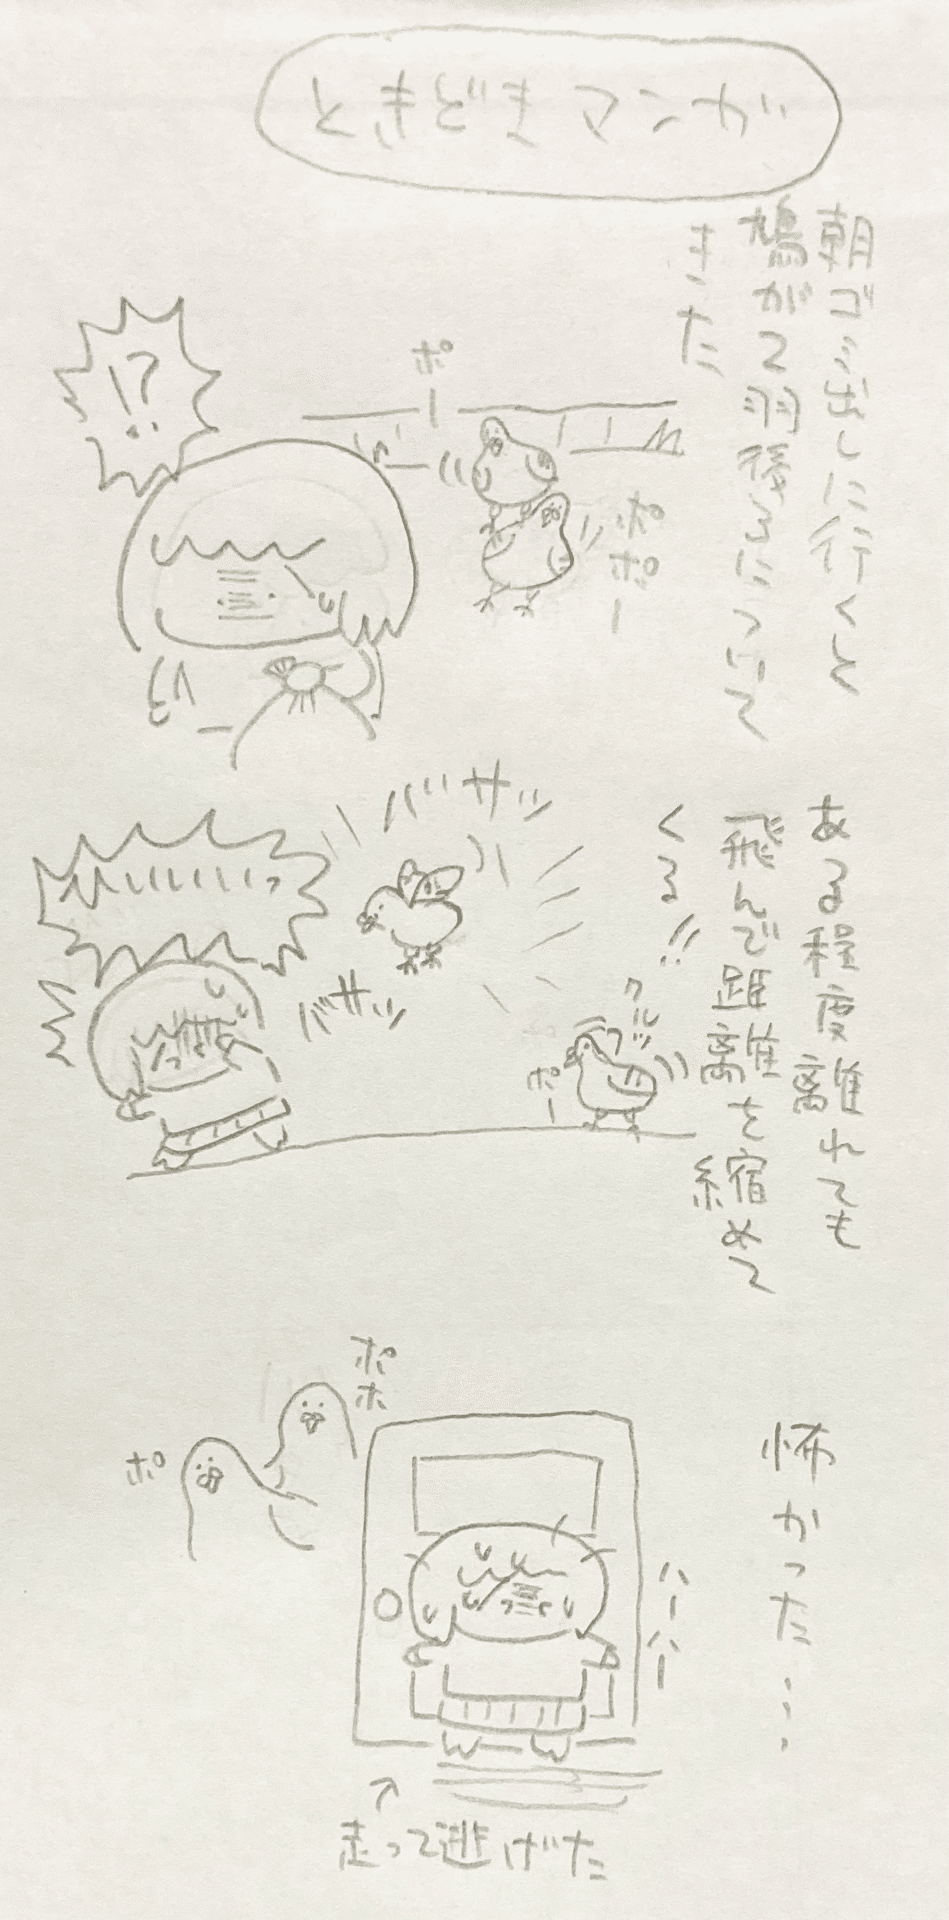 ときどきマンガ
朝ゴミ出しに行くと
鳩が2羽後ろについて
きた
!?
ポー
ポポー
ある程度離れても
飛んで距離を縮めて
くる!!
バサッ
バサッ
クルッ
ポー
怖かった…
ポポ
ポ
ハーハー
走って逃げた